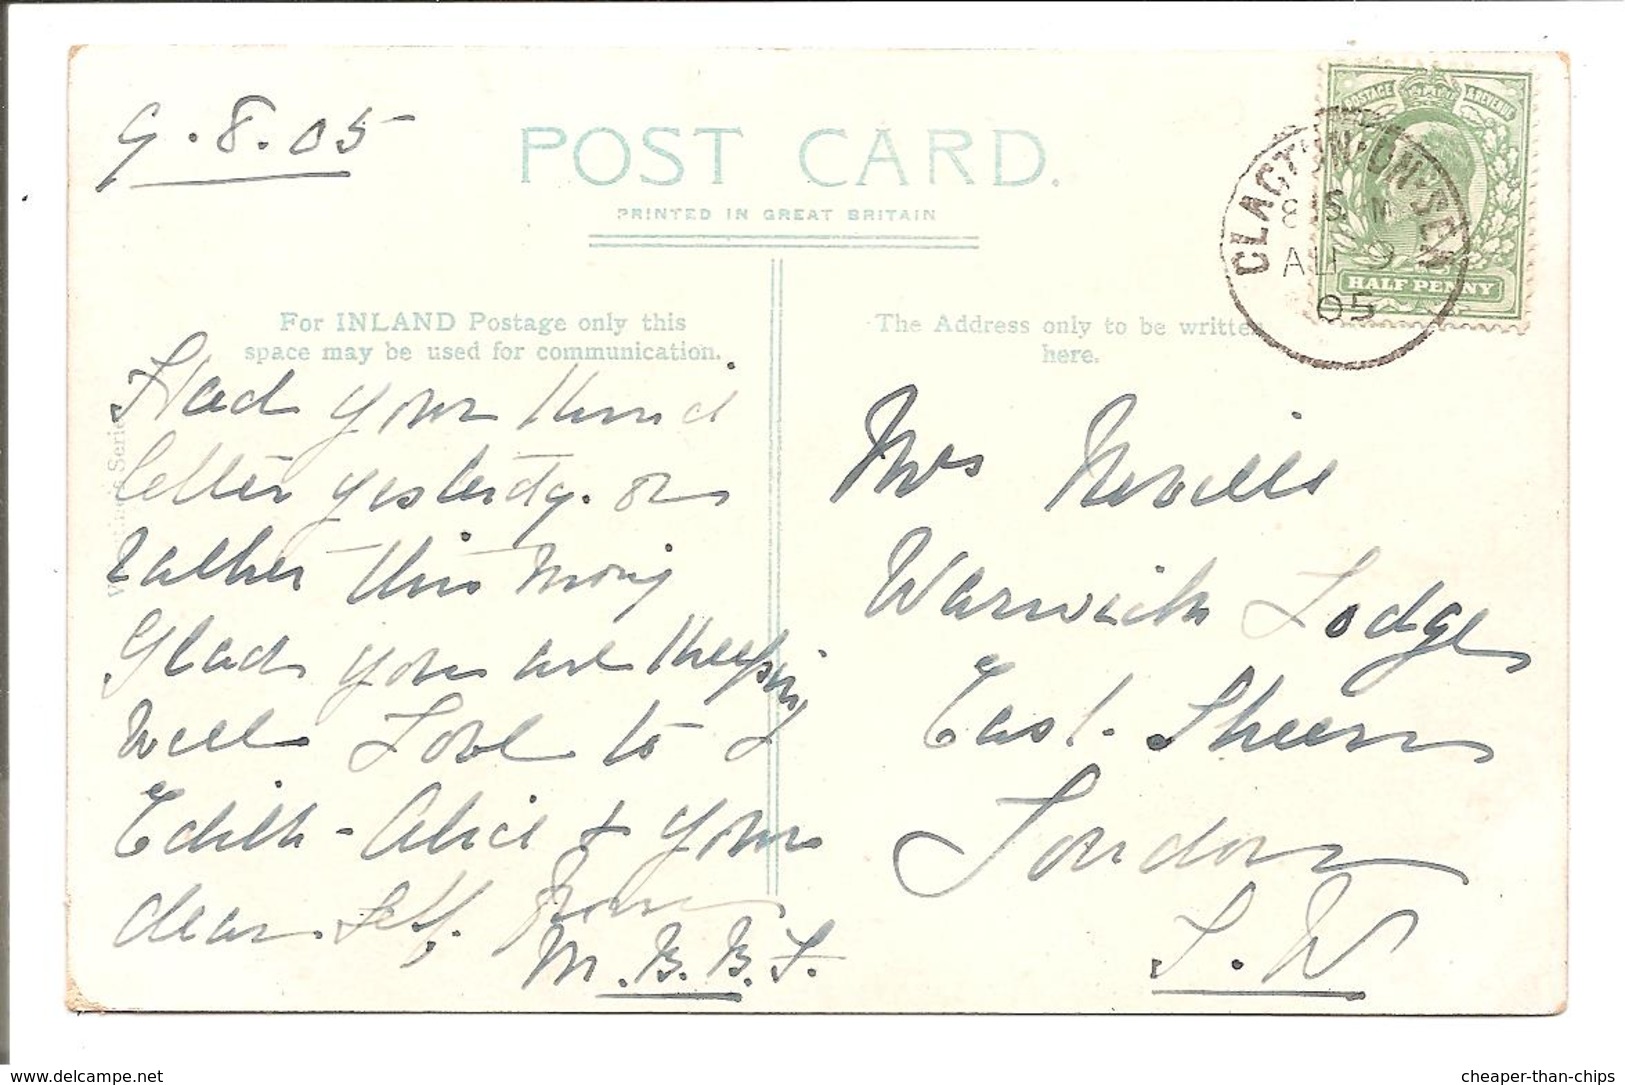 9.8.05
POST CARD.
PRINTED IN GREAT BRITAIN
POSTAGE & REVENUE
HALF PENNY
CLACTON-ON-SEA
AU 9
05
For INLAND Postage only this
space may be used for communication.
The Address only to be written
here.
Had your kind
letter yesterdy. or
rather this mornig
Glad you are keeping
well Love to
Edith - Alice & your
dear self.
M.B.B.
Mrs Neville
Warwick Lodge
East Sheen
London
S.W
www.delcampe.net
cheaper-than-chips